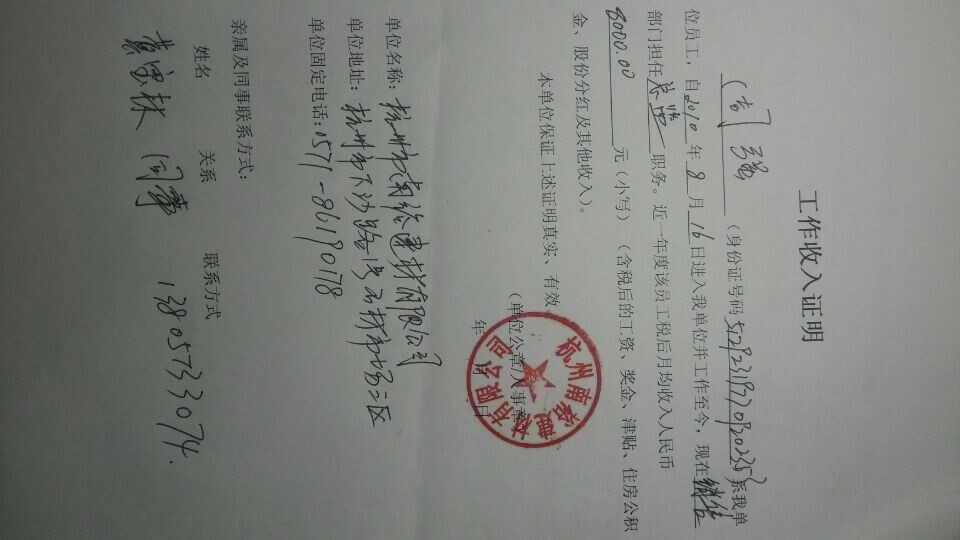 工作收入证明
何强 (身份证号码 522723197709302357 系我单
位员工，自 2010 年 8 月 16 日进入我单位并工作至今，现在 销售
部门担任 总监 职务。近一年度该员工税后月均收入人民币
8000.00 元（小写）（含税后的工资、奖金、津贴、住房公积
金、股份分红及其他收入）。
本单位保证上述证明真实、有效。
（单位公章/人事章）
年 月 日
杭州南裕建材有限公司
单位名称：杭州市南裕建材有限公司
单位地址：杭州市下沙路1号石材市场二区
单位固定电话：0571-86190178
亲属及同事联系方式：
姓名 关系 联系方式
黄宝林 同事 13805733074.